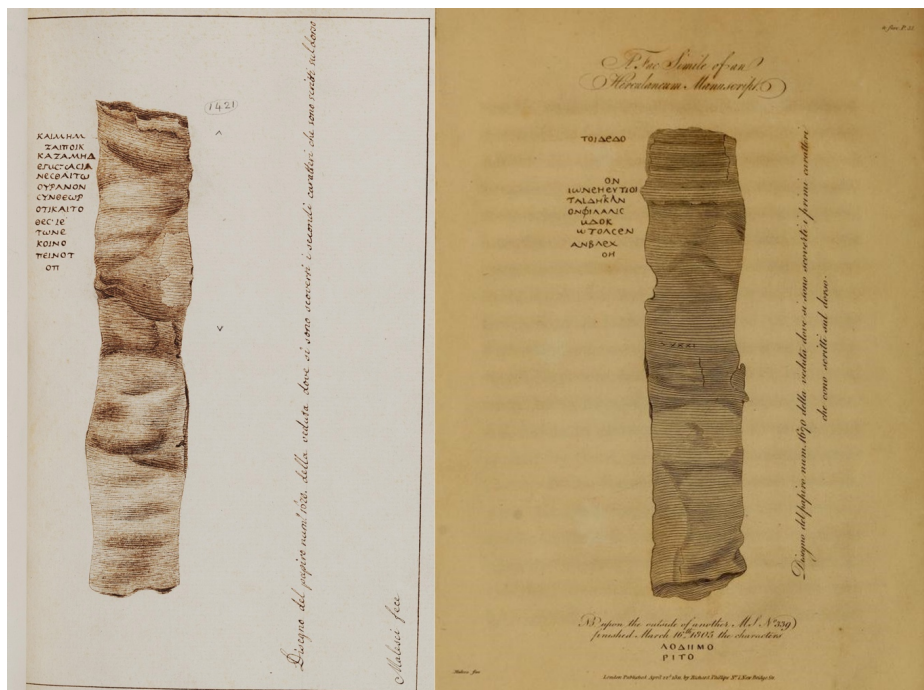 1421
ΚΑΙΜΗΜ
ΤΑΙΠΟΙΚ
ΚΑΖΑΜΗΔ
ΝΕϹΘΑΙΤΩ
ΟΥΡΑΝΟΝ
ϹΥΝΘΕΩΡ
ΟΤΙΚΑΙΤΟ
ΘΕϹ·ΙΕ
ΤΩΝΕ
ΚΟΙΝΟ
ΠΕΙΝΟΤ
ΟΠ
Disegno del papiro num.º 1670. della veduta dove si sono scoverti i secondi caratteri che sono scritti sul dorso
Malesci fece
a face P.
A Fac Simile of an
Herculaneum Manuscript.
ΤΟΙΔΕΔΟ
ΟΝ
ΙΩΝΕΗΕΥΤΙΟΙ
ΤΑΙΔΗΚΑΝ
ΟΝΦΙΛΑΛΙϹ
ΩΔΟΚ
ΩΤΟΛϹΕΝ
ΑΝΒΛΕΧ
ΟΗ
Disegno del papiro num. 1670 della veduta dove si sono scoverti i primi caratteri
che sono scritti sul dorso.
upon the outside of another M.S. Nº 339)
finished March 16th 1805 the characters
ΛΟΔΗΜΟ
ΡΙΤΟ
London Published April 1811 by Richard Phillips Nº 6 New Bridge St.